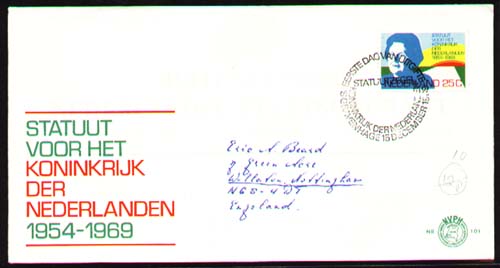 STATUUT
VOOR HET
KONINKRIJK
DER
NEDERLANDEN
1954-1969
STATUUT
VOOR HET
KONINKRIJK
DER
NEDERLANDEN
1954-1969
NEDERLAND 25C
EERSTE DAG VAN UITGIFTE
STATUUTZEGEL
KONINKRIJK DER NEDERLANDEN
'S-GRAVENHAGE 15 DECEMBER 1969
Eric A Beard
Green Acre
Wollaton, Nottingham
England.
NVPH
NR 101